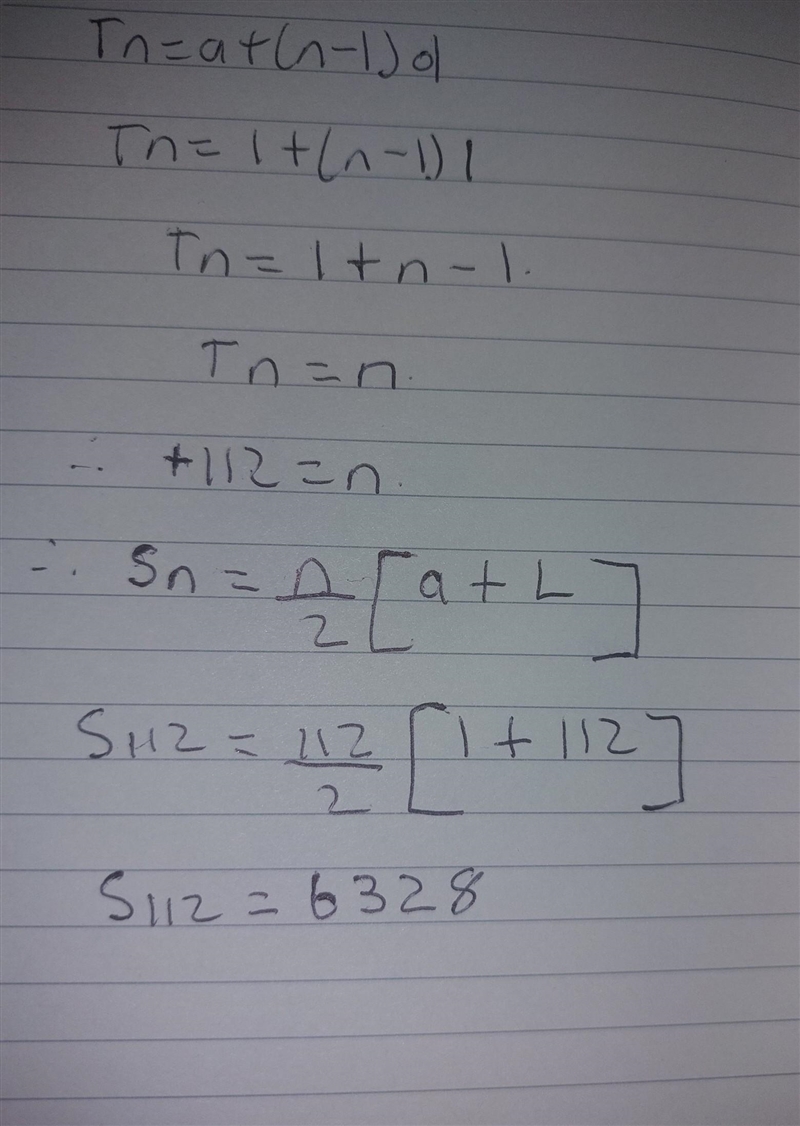 Tn = a + (n - 1) d
Tn = 1 + (n - 1) 1
Tn = 1 + n - 1.
Tn = n.
∴ +112 = n.
∴ Sn = n/2 [a + L]
S112 = 112/2 [1 + 112]
S112 = 6328